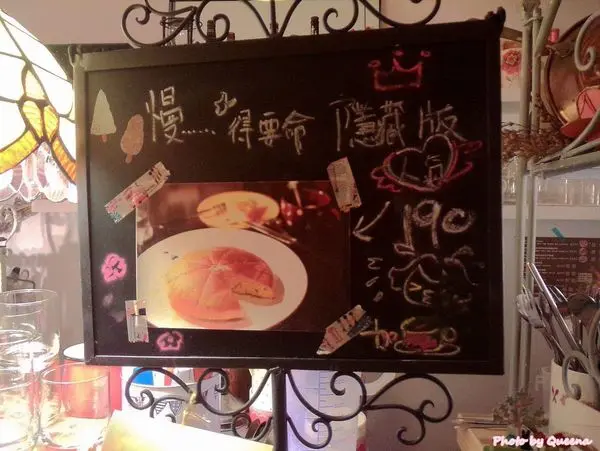 慢......得要命 隱藏版
人氣
190
Photo by Queena